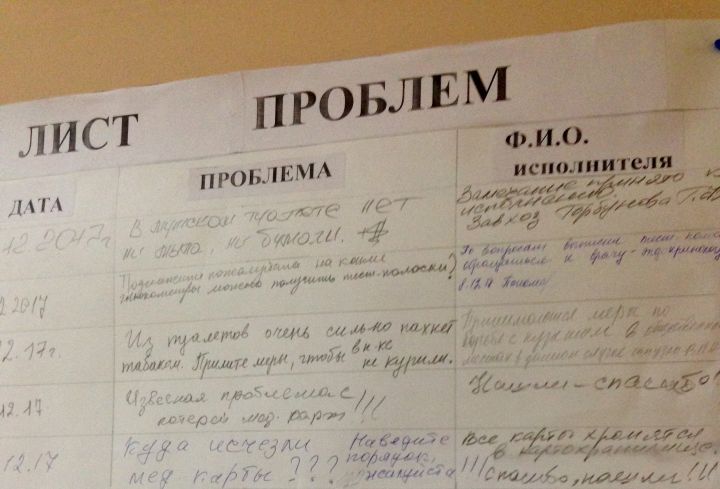 ЛИСТ ПРОБЛЕМ
ДАТА
ПРОБЛЕМА
Ф.И.О.
исполнителя
12.2017г
В мужском туалете нет
ни мыла, ни бумаги.
Замечание принято к
Завхоз Горбунова
2017
Подскажите пожалуйста на какие
глюкометры можно получить тест-полоски?
По вопросам тест
обращаться к врачу
8.12.17
12.17г.
Из туалетов очень сильно пахнет
табаком. Примите меры, чтобы в
не курили.
Принимаются меры по
борьбе с курением в
12.17
Извесная проблема с
потерей мед. карт!!!
Нашли - спасибо!
12.17
Куда исчезли
мед карты???
Наведите
порядок,
пожалуйста!!!
Все карты хранятся
в картохранилище.
Спасибо, нашли!!!